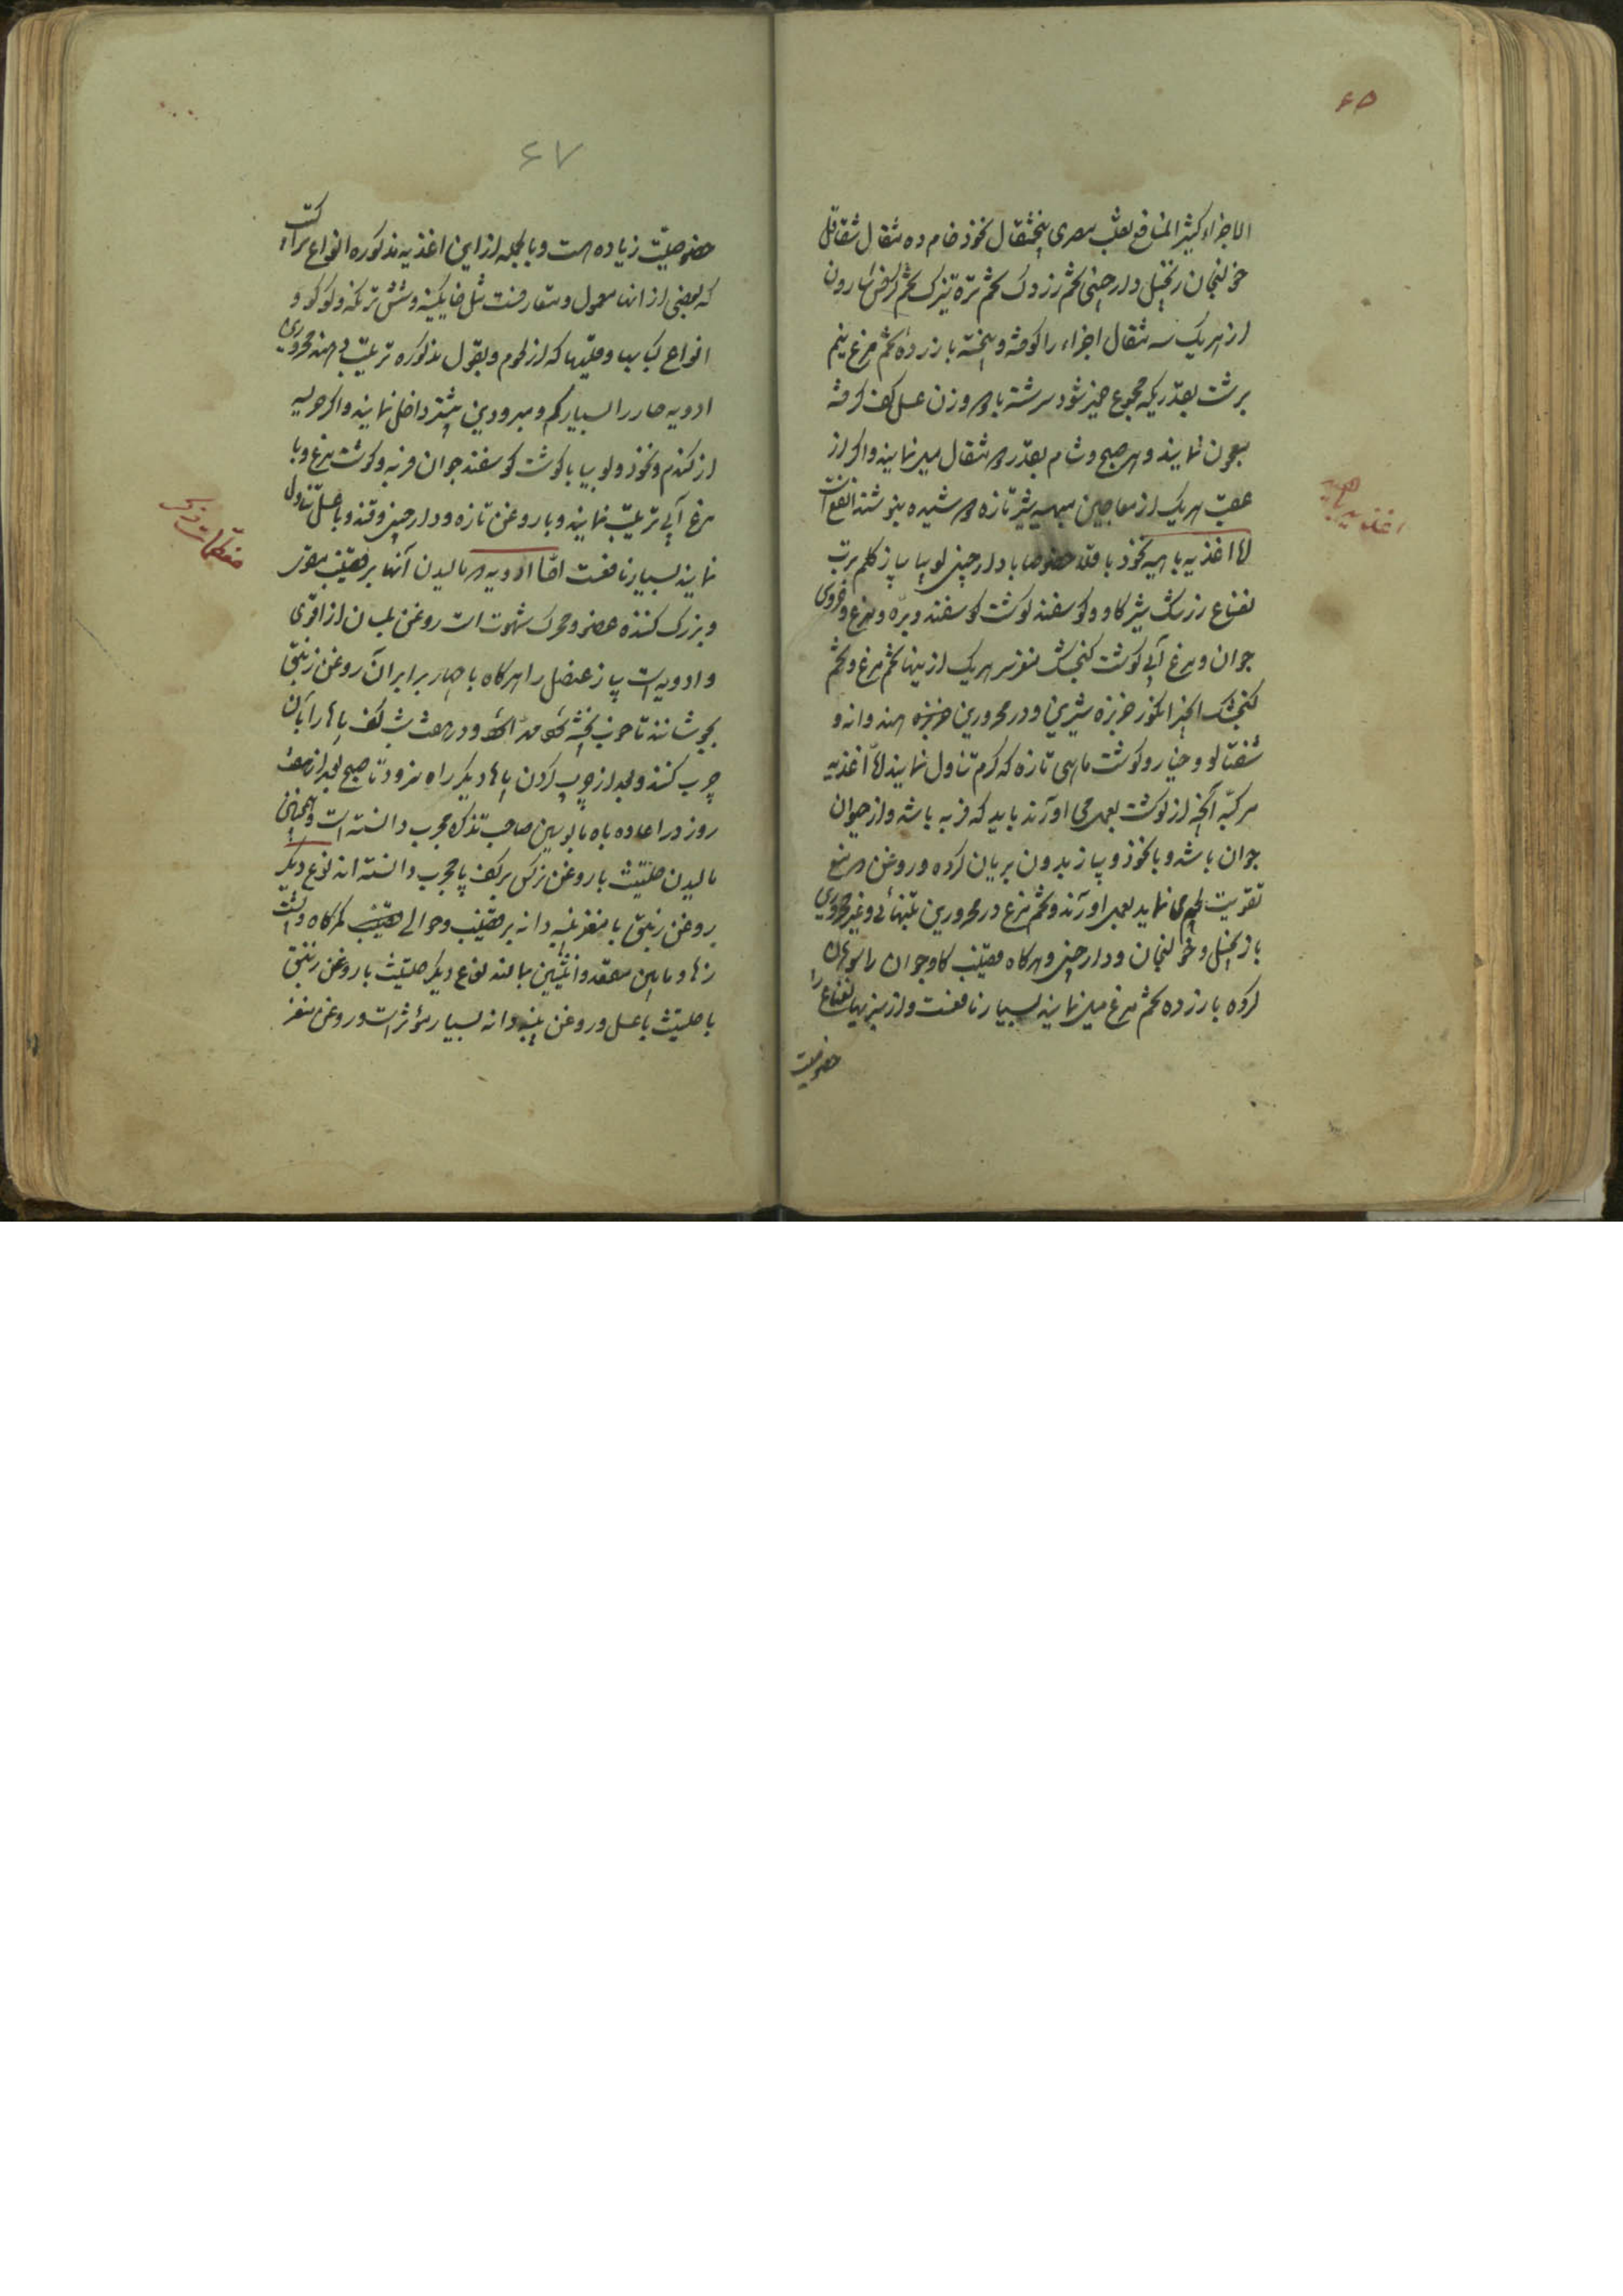 ۶۵
الاجزاء کثیر المنافع ثعلب مصری پنجمثقال نخود خام ده مثقال شقاقل
خولنجان زنجبیل دارچینی تخم زردک تخم تره تیزک تخم کرفس اسارون
از هریک سه مثقال اجزاء را کوفته و پخته با زرده تخم مرغ نیم
برشت بقدریکه مجموع خمیر شود سرشته با وزن عسل کف کرفته
معجون نمایند و هر صبح و شام بقدر مثقال میل نمایند و اکر از
عقب هریک از معاجین مبهیه شیر تازه بنوشند انفع است
اغذیه باهیه
اما اغذیه باهیه نخود باقلا خصوصا با دارچینی لوبیا پیاز کلم
نعناع زردک شیر کاو و کوسفند کوشت کوسفند و بره و مرغ و خروس
جوان و مرغ آبی کوشت کنجشک مغز سر هریک ازینها تخم مرغ و تخم
کنجشک انجیر انکور خربزه شیرین و در محرورین هندوانه و
شفتالو و خیار و کوشت ماهی تازه که کرم تناول نمایند اما اغذیه
مرکبه آنچه از کوشت بعمل می اورند باید که فربه باشد و از حیوان
جوان باشد و با نخود و پیاز بدون بریان کرده و روغن
تقویت می نماید بعمل اورند و تخم مرغ در محرورین بتنهائی و غیر محرورین
با زنجبیل و خولنجان و دارچینی و هرکاه قضیب کاو جوان را سوهان
کرده با زرده تخم مرغ میل نمایند بسیار نافعست و از سبزیها نعناع را
خصوصیت
۶۷
خصوصیت زیاده است و بالجمله از این اغذیه مذکوره انواع مرکبات
که بعضی از انها معمول و متعارفست مثل خاکینه و شش ترنکه و کوکو و
انواع کبابها و قلیه ها که از لحوم و بقول مذکوره ترتیب دهند محرورین
ادویه حاره را بسیار کم و مبرودین بیشتر داخل نمایند و اکر هریسه
از کندم و نخود و لوبیا با کوشت کوسفند جوان فربه و کوشت مرغ و یا
مرغ آبی ترتیب نمایند و با روغن تازه و دارچینی و قند و یا عسل تناول
نمایند بسیار نافعست اما ادویه مالیدن آنها بر قضیب
و بزرک کننده عضو و محرک شهوت است روغن بلسان از اقوی
و ادویه است پیاز عنصل را هرکاه با چهار برابر آن روغن زنبق
بجوشانند تا خوب پخته شود و در هفت شب کف پاها را بآن
چرب کنند و بعد از چرب کردن پاها دیکر راه نرود تا صبح بعد از هفت
روز در اعاده باه مایوسین صاحب تذکره مجرب دانسته است و همچنین
مالیدن حلتیت با روغن نرکس بر کف پا مجرب دانسته اند نوع دیکر
روغن زنبق با مغز پنبه دانه بر قضیب و حوالی کمرکاه و پشت
رانها و مابین مقعد و انثیین بمالند نوع دیکر حلتیت با روغن زنبق
یا حلتیت با عسل و روغن پنبه دانه بسیار مؤثر است و روغن مغز